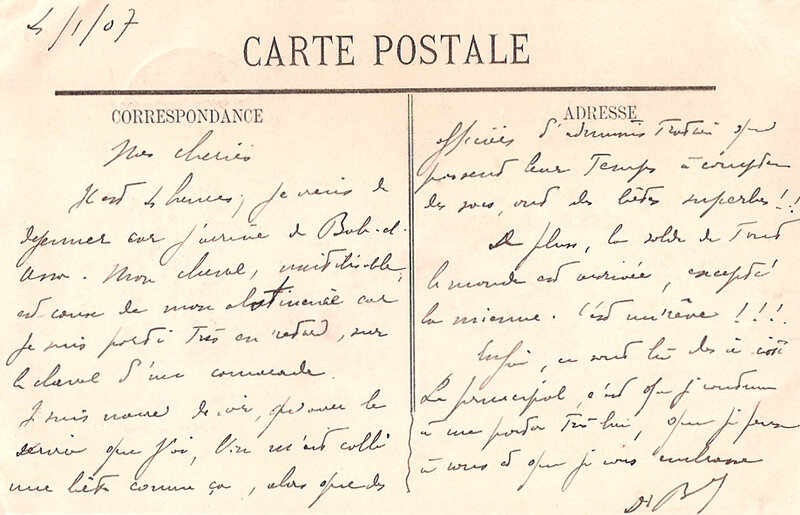 4/1/07
CARTE POSTALE
CORRESPONDANCE
Mes cheries
Il est 4 heures, je viens de
dejeuner car j'arrive de Bab-el-
Assa. Mon cheval, inutilisable,
est cause de mon abstinence car
je suis parti très en retard, sur
le cheval d'un camarade.
Je suis navré de voir, qu'avec le
service que j'ai, l'on m'ait collé
une bête comme ça, alors que des
ADRESSE
officiers d'administration qui
passent leur temps à compter
des sacs, ont des bêtes superbes!!
De plus, la solde de tout
le monde est arrivée, excepté
la mienne. C'est un rêve!!!!
Enfin, ce sont là des à côté
Le principal, c'est que je continue
à me porter très bien, que je pense
à vous et que je vous embrasse